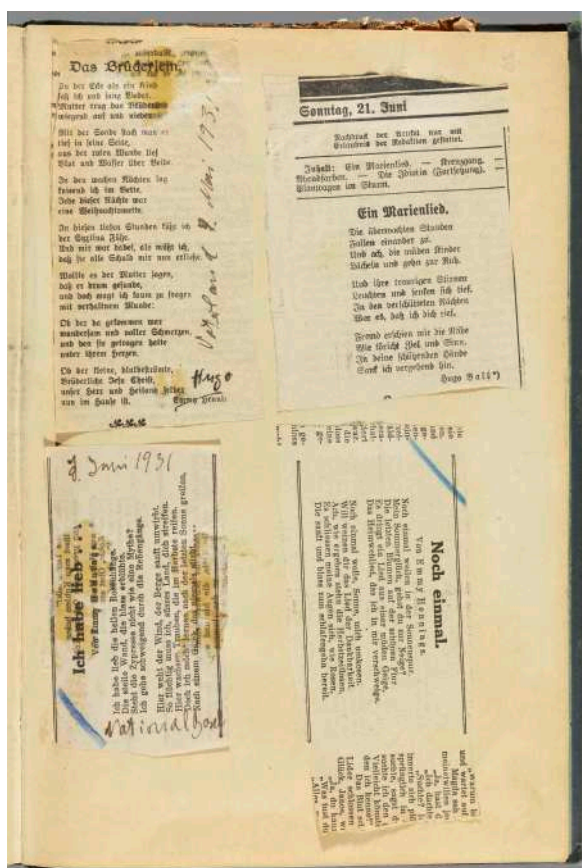 Das Brüderlein.
In der Ecke als ein Kind
saß ich und sang Lieder.
Mutter trug das Brüderlein
wiegend auf und nieder.
Mit der Sonde stach man
tief in seine Seite,
aus der roten Wunde lief
Blut und Wasser über Beide.
In den wachen Nächten lag
knieend ich im Bette.
Jede dieser Nächte war
eine Weihnachtsmette.
In diesen tiefen Stunden
Und mir war dabei, als müßt ich,
daß sie alle Schuld mir nun erließe.
Wollte es der Mutter sagen,
und doch wagt ich kaum zu fragen
mit verhaltnem Munde:
Ob der da gekommen war
wundersam und voller Schmerzen,
und den sie getragen hatte
unter ihrem Herzen.
Ob der kleine, blutbeströmte,
Brüderliche Jesu Christ,
unser Herr und Heiland selber
nun im Hause ist.
Vaterland 9. Mai 193
Hugo
Sonntag, 21. Juni
Nachdruck der Artikel nur mit
Erlaubnis der Redaktion gestattet.
Inhalt: Ein Marienlied. — Kreuzgang. —
Mondfarben. — Die Idiotin (Fortsetzung). —
im Sturm.
Ein Marienlied.
Die überwachten Stunden
Fallen einander zu.
Und ach, die müden Kinder
Lächeln und gehn zur Ruh.
Und ihre traurigen Stirnen
Leuchten und senken sich tief.
In den verschütteten Nächten
War es, daß ich dich rief.
Fremd erschien mir die Nähe
Wie töricht Ziel und Sinn.
In deine schützenden Hände
Sank ich vergehend hin.
Hugo Ball
8. Juni 1931
Ich habe lieb . . .
Von Emmy Hennings
Ich habe lieb die hellen
Die steile Wand, die blass erblühte.
Steht die Zypresse nicht wie eine Mythe?
Ich gehe schweigend durch die Rebengänge.
Hier weht der Wind, der Berge sanft umwirbt.
So flüchtig muss ich dieses Land, dich streifen.
Hier wachsen Trauben, die im Herbste reifen.
Doch ich möcht' lernen nach der letzten Sonne greifen,
Nach einem Glück, das niemals stirbt.
National
Noch einmal.
Von Emmy Hennings.
Noch einmal weilen in der Sonnenspur.
Mein Sommerglück, gehst du zur Neige?
Die letzten Blumen auf der schönen Flur
Es dringt ein Lied aus einer müden Geige,
Das Heimwehlied, das ich in mir verschweige.
Noch einmal wolle, Sonne, mich umkosen.
Will weinen dir das Lied der Dankbarkeit
Ach, wie ergeben stehn die Herbstzeitlosen,
Es schliessen meine Augen sich, wie Rosen,
Die sanft und blass zum schlafengehn bereit.
und wartet auf
Magda sah